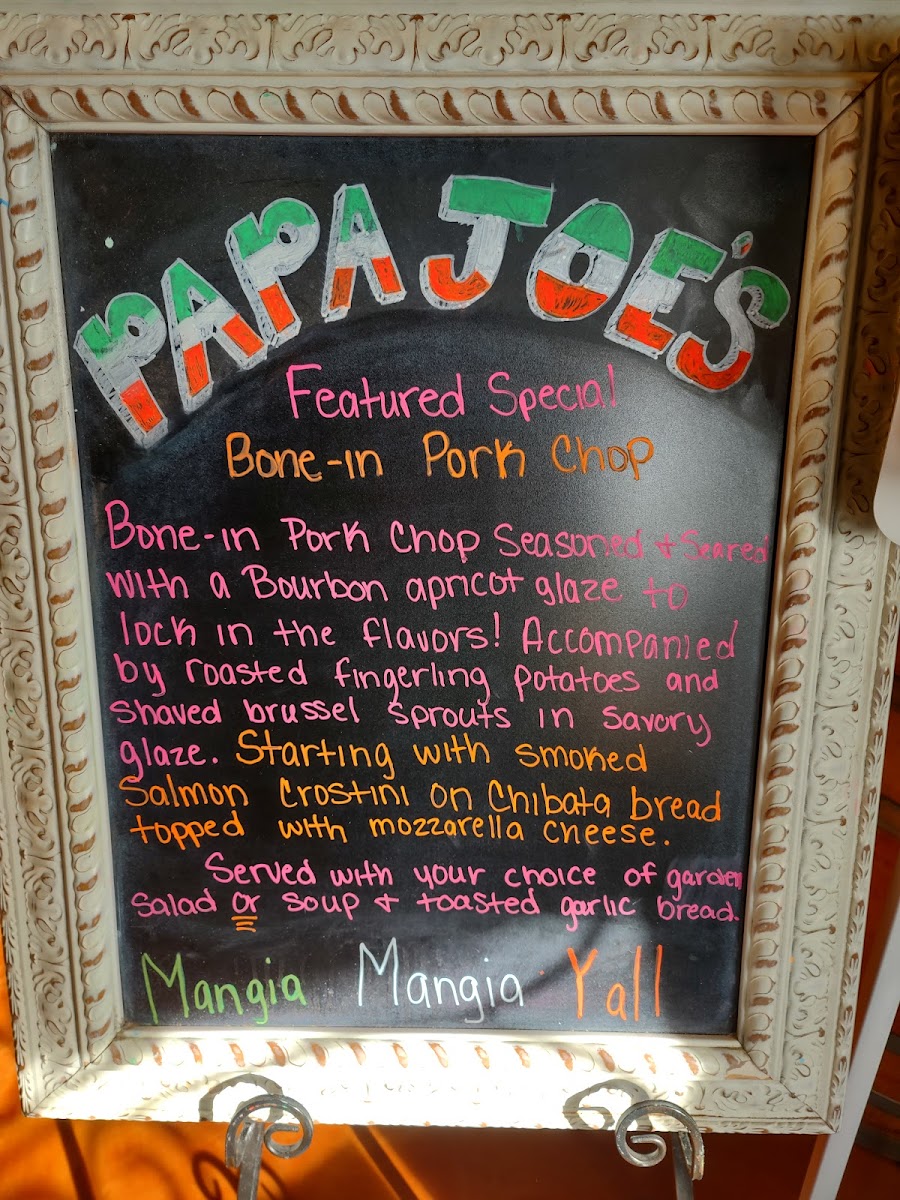 PAPA JOE'S
Featured Special
Bone-in Pork Chop
Bone-in Pork Chop Seasoned + Seared
with a Bourbon apricot glaze to
lock in the flavors! Accompanied
by roasted fingerling potatoes and
shaved brussel sprouts in savory
glaze. Starting with smoked
Salmon Crostini on Chibata bread
topped with mozzarella cheese.
Served with your choice of garden
Salad or soup + toasted garlic bread.
Mangia Mangia Yall